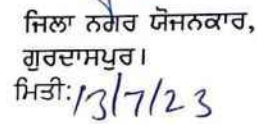 ਜਿਲਾ ਨਗਰ ਯੋਜਨਕਾਰ,
ਗੁਰਦਾਸਪੁਰ।
ਮਿਤੀ:13/7/23